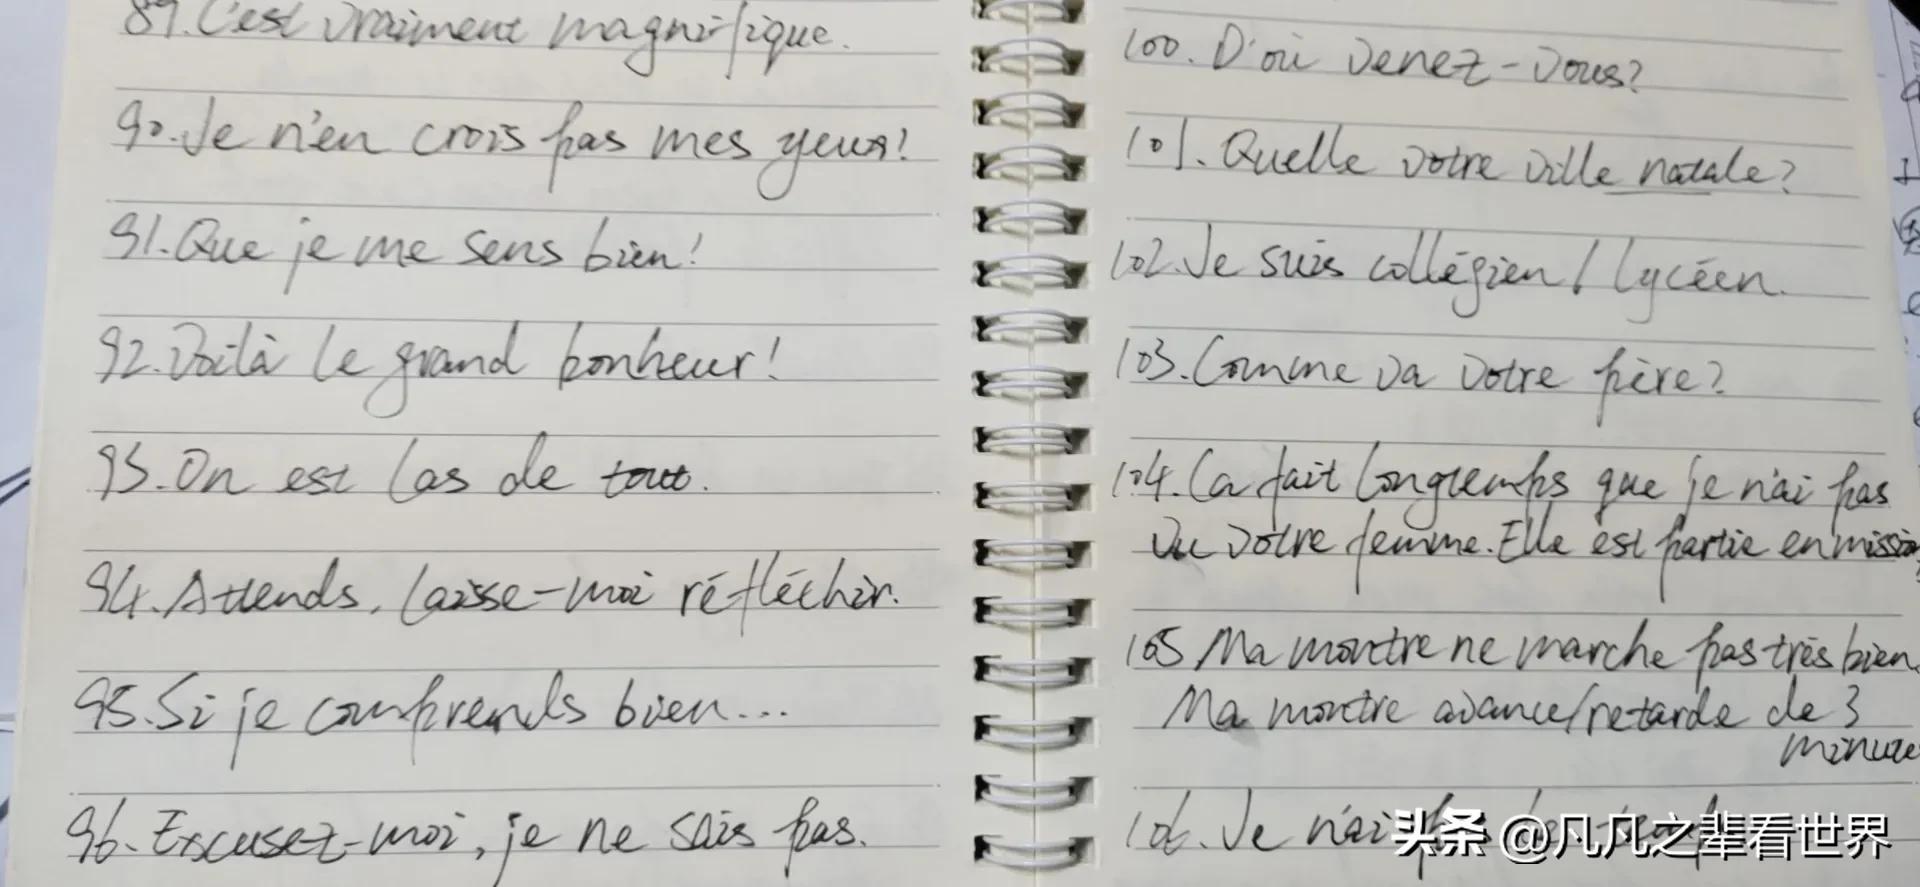 89. C'est vraiment magnifique.
90. Je n'en crois pas mes yeux!
91. Que je me sens bien!
92. Voilà le grand bonheur!
93. On est las de tout.
94. Attends, laisse-moi réfléchir.
95. Si je comprends bien...
96. Excusez-moi, je ne sais pas.
100. D'où venez-vous?
101. Quelle votre ville natale?
102. Je suis collégien / lycéen.
103. Comme va votre père?
104. Ca fait longtemps que je n'ai pas
vu votre femme. Elle est partie en mission
105 Ma montre ne marche pas très bien.
Ma montre avance/retarde de 3
minute
106. Je n'ai pas
头条 @凡凡之辈看世界